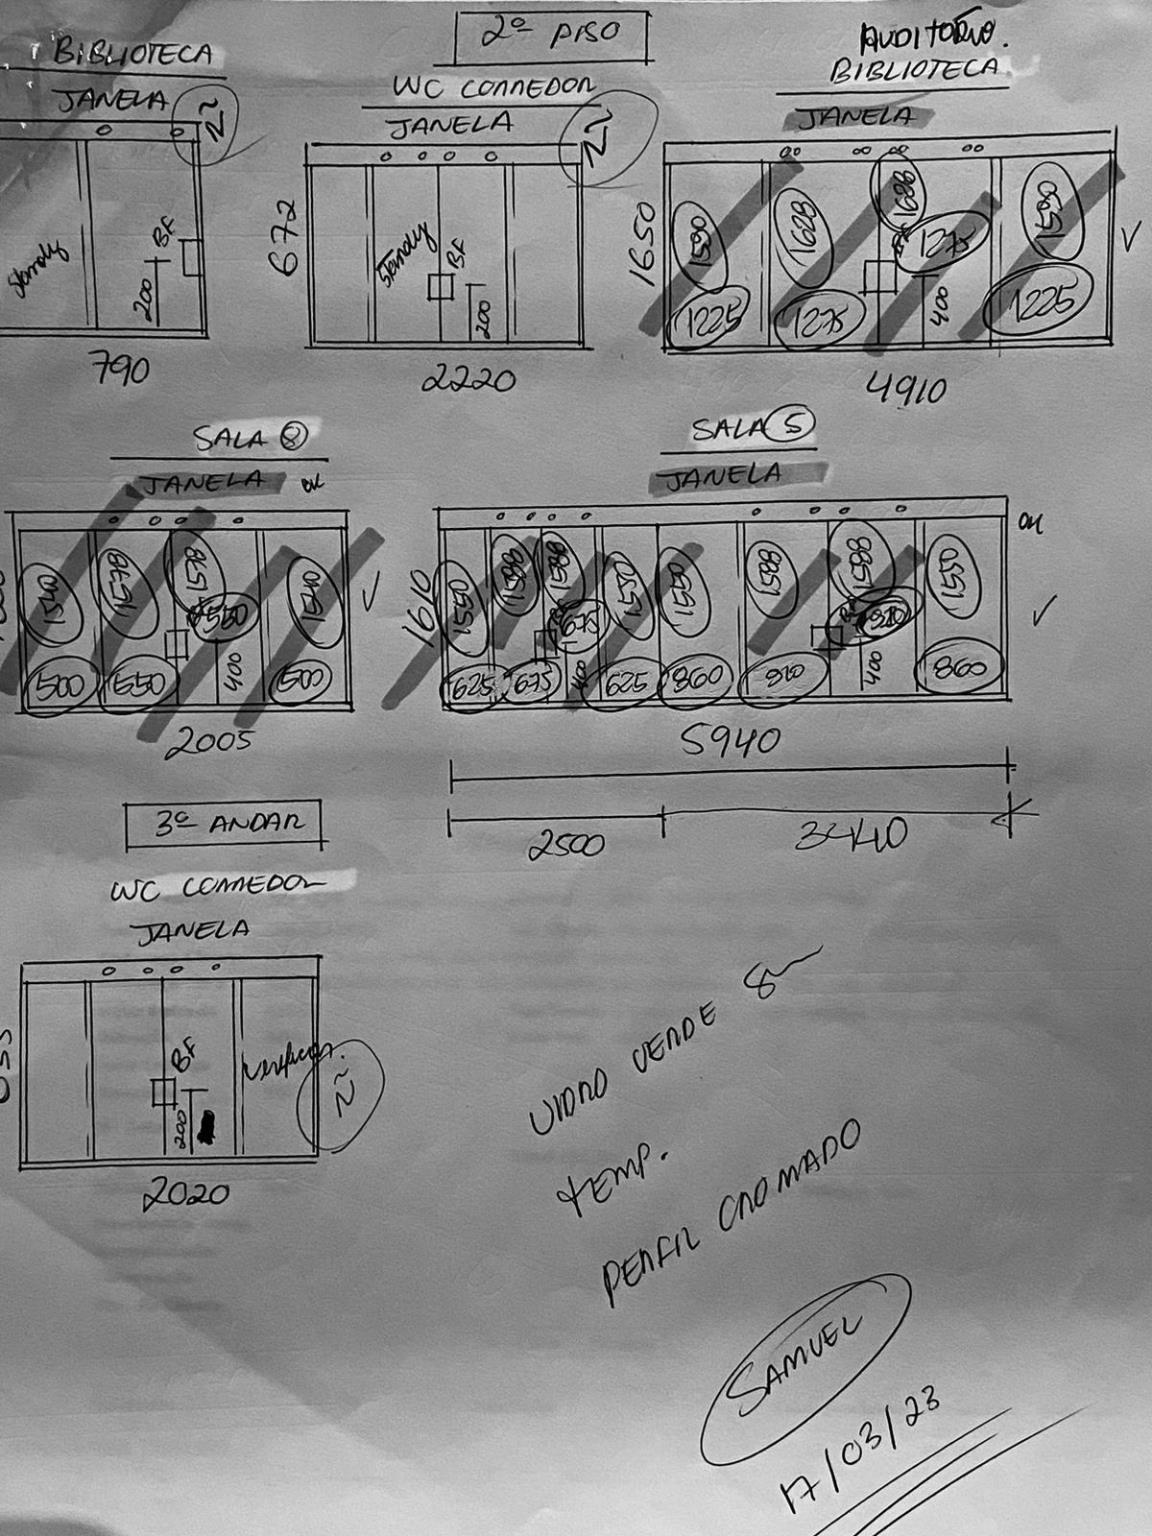 2º PISO
BIBLIOTECA
JANELA
Ñ
BF
200
790
WC CORREDOR
JANELA
Ñ
672
BF
200
2220
AUDITÓRIO.
BIBLIOTECA
JANELA
1650
1590
1628
1628
1590
1225
1275
1275
1225
400
4910
SALA 8
JANELA OK
1540
1578
1578
1540
500
550
550
500
400
2005
SALA 5
JANELA
OK
1610
1550
1588
1588
1550
1550
1588
1588
1550
625
675
675
625
860
910
910
860
400
400
5940
2500
3440
3º ANDAR
WC CORREDOR
JANELA
BF
200
verificar.
Ñ
2020
VIDRO VERDE 8
TEMP.
PERFIL CROMADO
SAMUEL
17/03/23